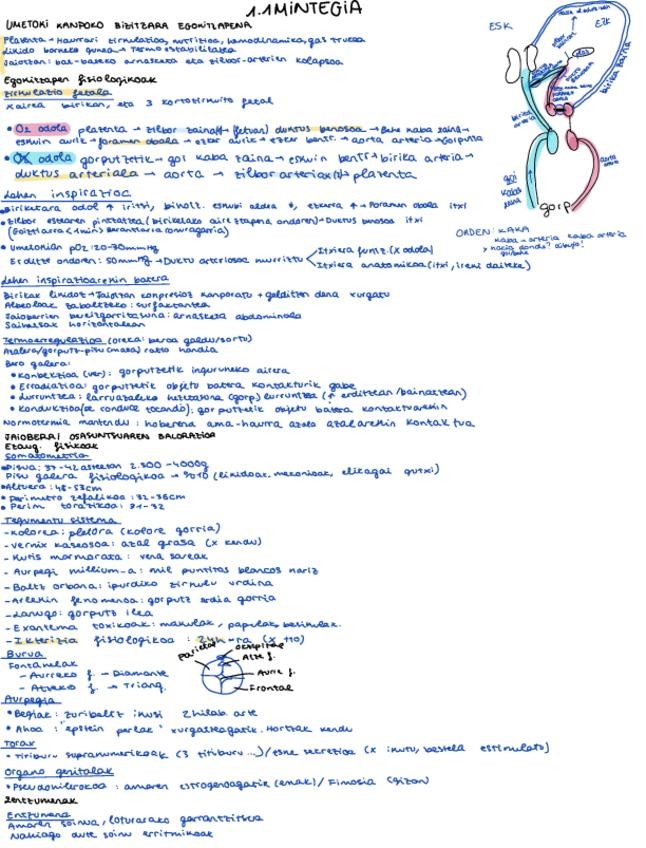 1.1 MINTEGIA
UMETOKI KANPOKO BIZITZARA EGOKITZAPENA
Placenta → Haurrari zirkulazioa, nutrizioa, hemodinamika, gas trukea
Likido barneko gunea → Termoestabilitatea
Jaiotzan: bat-bateko arnasketa eta zilbor-arterien kolapsoa
Egokitzapen fisiologikoak
Zirkulazio fetala
Xairea birikan, eta 3 kortozirkuito fetal
• O2 odola placenta → zilbor zaina → (fetua) duktus benosoa → Behe kaba zaina →
eskuin aurik → foramen obala → ezker aurik → ezker bentr → aorta arteria → Gorputza
• OX odola gorputzetik → goi kaba zaina → eskuin bentr → birika arteria →
duktus arteriala → aorta → zilbor arteriak → placenta
Lehen inspirazioa
• Biriketara odol ↑ iritsi, bihotz. eskubi aldea ↓, ezkerra ↑ → Foramen obala itxi
• Zilbor estearen pintzatzea (biriketako aireztapena ondoren) → Duktus benosoa itxi
• Umetokian pO2: 20-30mmHg
Erditze ondoren: 50mmHg → Duktu arteriosoa murriztu
Itxiera funtz. (X odola)
Itxiera anatomikoa (itxi, ireki daiteke)
Lehen inspirazioarekin batera
Birikak likidoz → Jaiotzan konpresioz kanporatu + gelditzen dena xurgatu
Albeoloak zabaltzeko: surfaktantea
Jaioberrien bereizgarritasuna: arnasketa abdominala
Saihetsak horizontalean
Termoerregulazioa (oreka: beroa galdu/sortu)
Azalera/gorputz-pisu (masa) ratio handia
Bero galera:
• Konbekzioa (ver): gorputzetik inguruneko airera
• Erradiazioa: gorputzetik objetu batera kontakturik gabe
• Lurruntzea: larruazaleko hezetasuna (gorp) lurruntzea (↑ erditzean/bainatzean)
• Kondukzioa (se conduce tocando): gorputzetik objetu batera kontaktuarekin
Normotermia mantendu: hoberena ama-haurra azala azalarekin kontaktua
JAIOBERRI OSASUNTSUAREN BALORAZIOA
Ezaug. fisikoak
Somatometria
• Pisua: 37-42 astetan 2.500-4000g
Pisu galera fisiologikoa → %10 (likidoak, mekonioak, elikagai gutxi)
• Altuera: 48-53cm
• Perimetro zefalikoa: 32-36cm
• Perim torazikoa: 31-32
Tegumentu sistema
- Kolorea: pletora (kolore gorria)
- Vernix kaseosoa: azal grasa (x kendu)
- Kutis marmorata: vena sareak
- Aurpegi millium-a: mil puntitos blancos nariz
- Baltz orbana: ipurdiko zirkulu urdina
- Arlekin fenomenoa: gorputz erdia gorria
- Lanugo: gorputz ilea
- Exantema toxikoak: makulak, papulak, besikulak.
- Ikterizia fisiologikoa: 24h-ra (x 110)
Burua
Fontanelak
- Aurreko f. → Diamante
- Atzeko f. → Triang.
Parietal
Okzipital
Atze f.
Aurre f.
Frontal
Aurpegia
• Begiak: zuribeltz ikusi 2 hilab. arte
• Ahoa: "epstein perlak" xurgatzeagatik. Hortzak kendu
Torax
• Titiburu supranumerikoak (3 titiburu...)/esne sekrezioa (x ikutu, bestela estimulatu)
Organo genitalak
• Pseudomenorrea: amaren estrogenoagatik (emak)/ Fimosia (gizon)
Zentzumenak
Entzumena
Amaren soinua, loturarako garrantzitsua
Nahiago dute soinu erritmikoak
ESK
EZK
birika arteria
birika baina
goi
kaba
zaina
aorta
arteria
gorp
ORDEN: KAKA
kaba → arteria kaba arteria